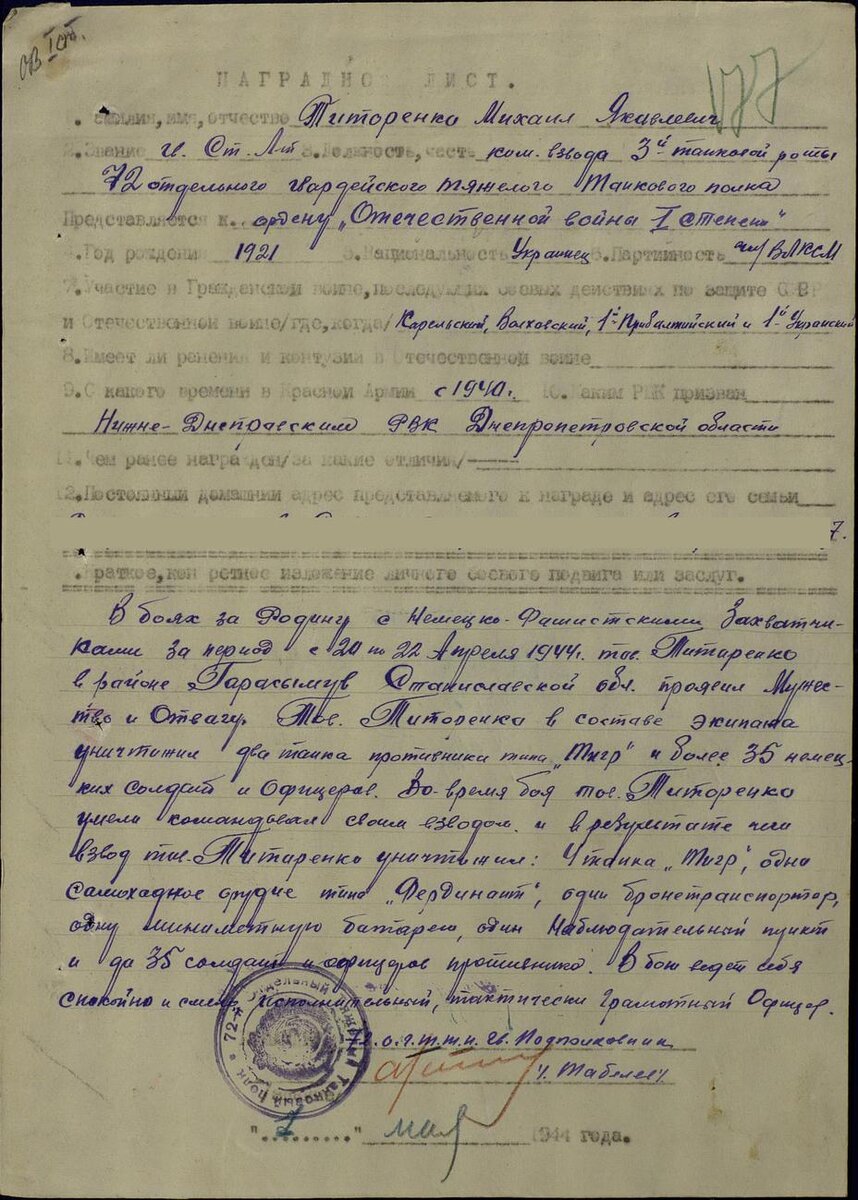 ОВ Iст.
НАГРАДНОЙ ЛИСТ.
177
1. Фамилия, имя, отчество Титоренко Михаил Яковлевич
2. Звание гв. Ст. Л-т 3. Должность, часть ком. взвода 3й танковой роты
72 отдельного гвардейского тяжелого Танкового полка
Представляется к ордену „Отечественной войны I степени"
4. Год рождения 1921 5. Национальность Украинец 6. Партийность чл/ВЛКСМ
7. Участие в Гражданской войне, последующих боевых действиях по защите СССР
и Отечественной войне/где, когда/ Карельский, Волховский, 1й Прибалтийский и 1й Украинский
8. Имеет ли ранения и контузии в Отечественной войне
9. С какого времени в Красной Армии с 1940г. 10. Каким РВК призван
Нижне-Днепровским РВК Днепропетровской области
11. Чем ранее награжден/за какие отличия/ —
12. Постоянный домашний адрес представляемого к награде и адрес его семьи
7.
Краткое, конкретное изложение личного боевого подвига или заслуг.
В боях за Родину с Немецко-Фашистскими Захватчи-
ками за период с 20 по 22 Апреля 1944г. тов. Титаренко
в районе Гарасымув Станиславской обл. проявил Мужес-
тво и Отвагу. Тов. Титоренко в составе экипажа
уничтожил два танка противника типа „Тигр" и более 35 немец-
ких солдат и Офицеров. Во-время боя тов. Титоренко
умело командовал своим взводом и в результате чего
взвод тов. Титаренко уничтожил: 4 танка „Тигр", одно
Самоходное орудие типа „Фердинант", один бронетранспортер,
одну минометную батарею, один Наблюдательный пункт
и до 35 солдат и офицеров противника. В бою ведет себя
спокойно и смело исполнительный, тактически грамотный Офицер.
72 о.г.т.т.п. гв. Подполковник
/Табелев/
72-й Отдельный Тяжелый Танковый Полк
"2" мая 1944 года.